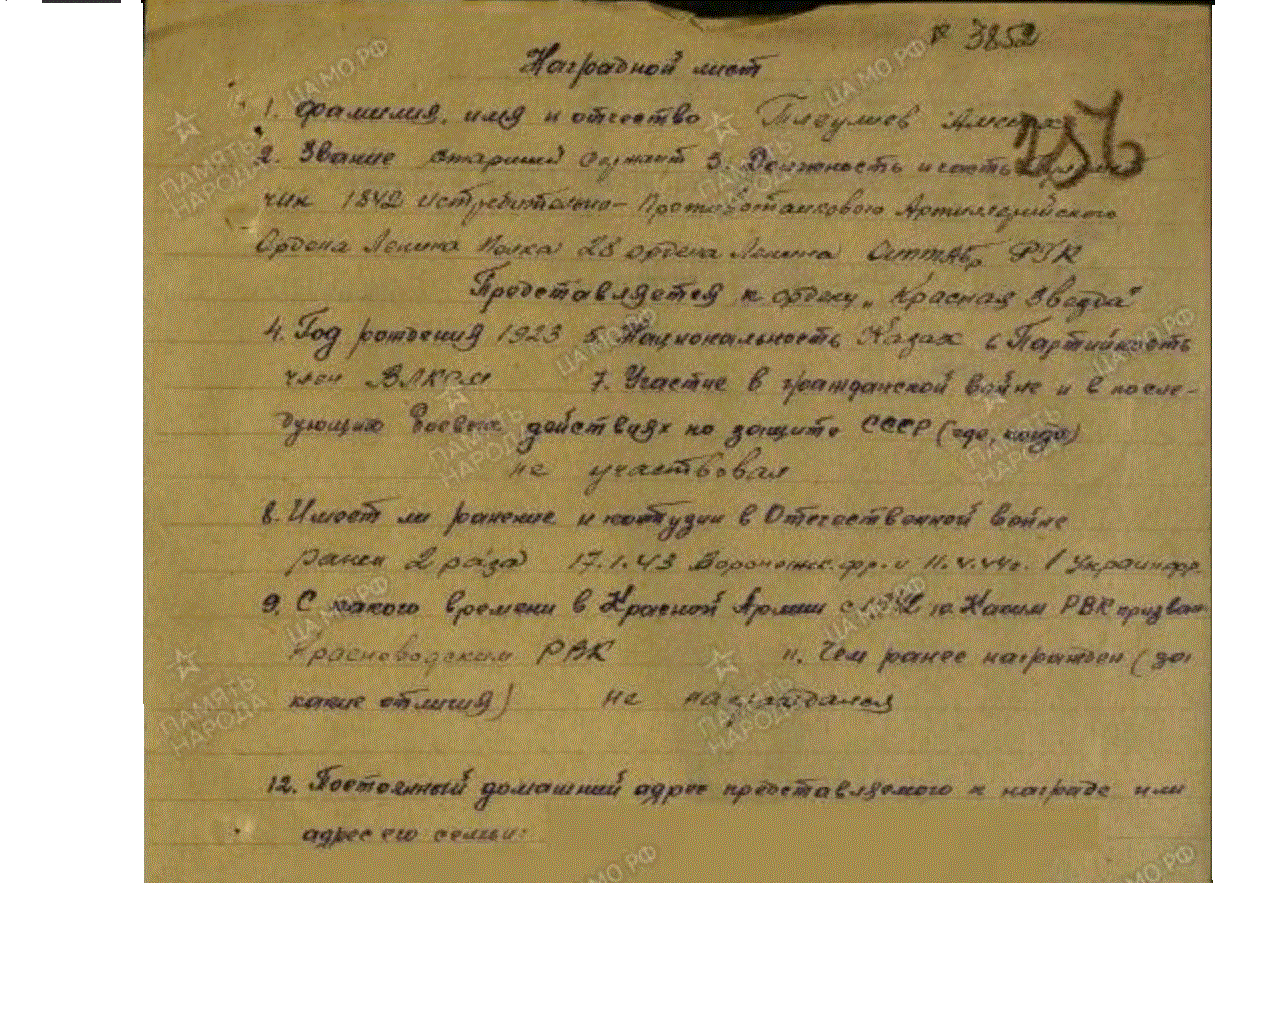 № 3852
Наградной лист
1. Фамилия, имя и отчество Тлеулиев
2. Звание старший сержант 3. Должность и часть
чик 1842 Истребительно-Противотанкового Артиллерийского
Ордена Ленина Полка 28 ордена Ленина РГК
Представляется к ордену „Красная Звезда"
4. Год рождения 1923 5. Национальность Казах 6 Партийность
член ВЛКСМ 7. Участие в гражданской войне и в после-
дующих боевых действиях по защите СССР (где, когда)
не участвовал
8. Имеет ли ранение и контузии в Отечественной войне
Ранен 2 раза 17.1.43 Воронежс. фр. и 11.4.44г. 1 Украин.фр.
9. С какого времени в Красной Армии с 1942 10. Каким РВК призван
Красноводским РВК 11. Чем ранее награжден (за
какие отличия) не награждался
12. Постоянный домашний адрес представляемого к награде или
адрес его семьи:
ПАМЯТЬ НАРОДА
ЦАМО.РФ